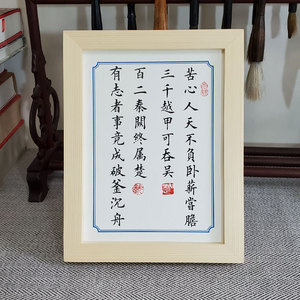 苦心人天不負卧薪嘗膽
三千越甲可吞吴
百二秦關終属楚
有志者事竟成破釜沉舟